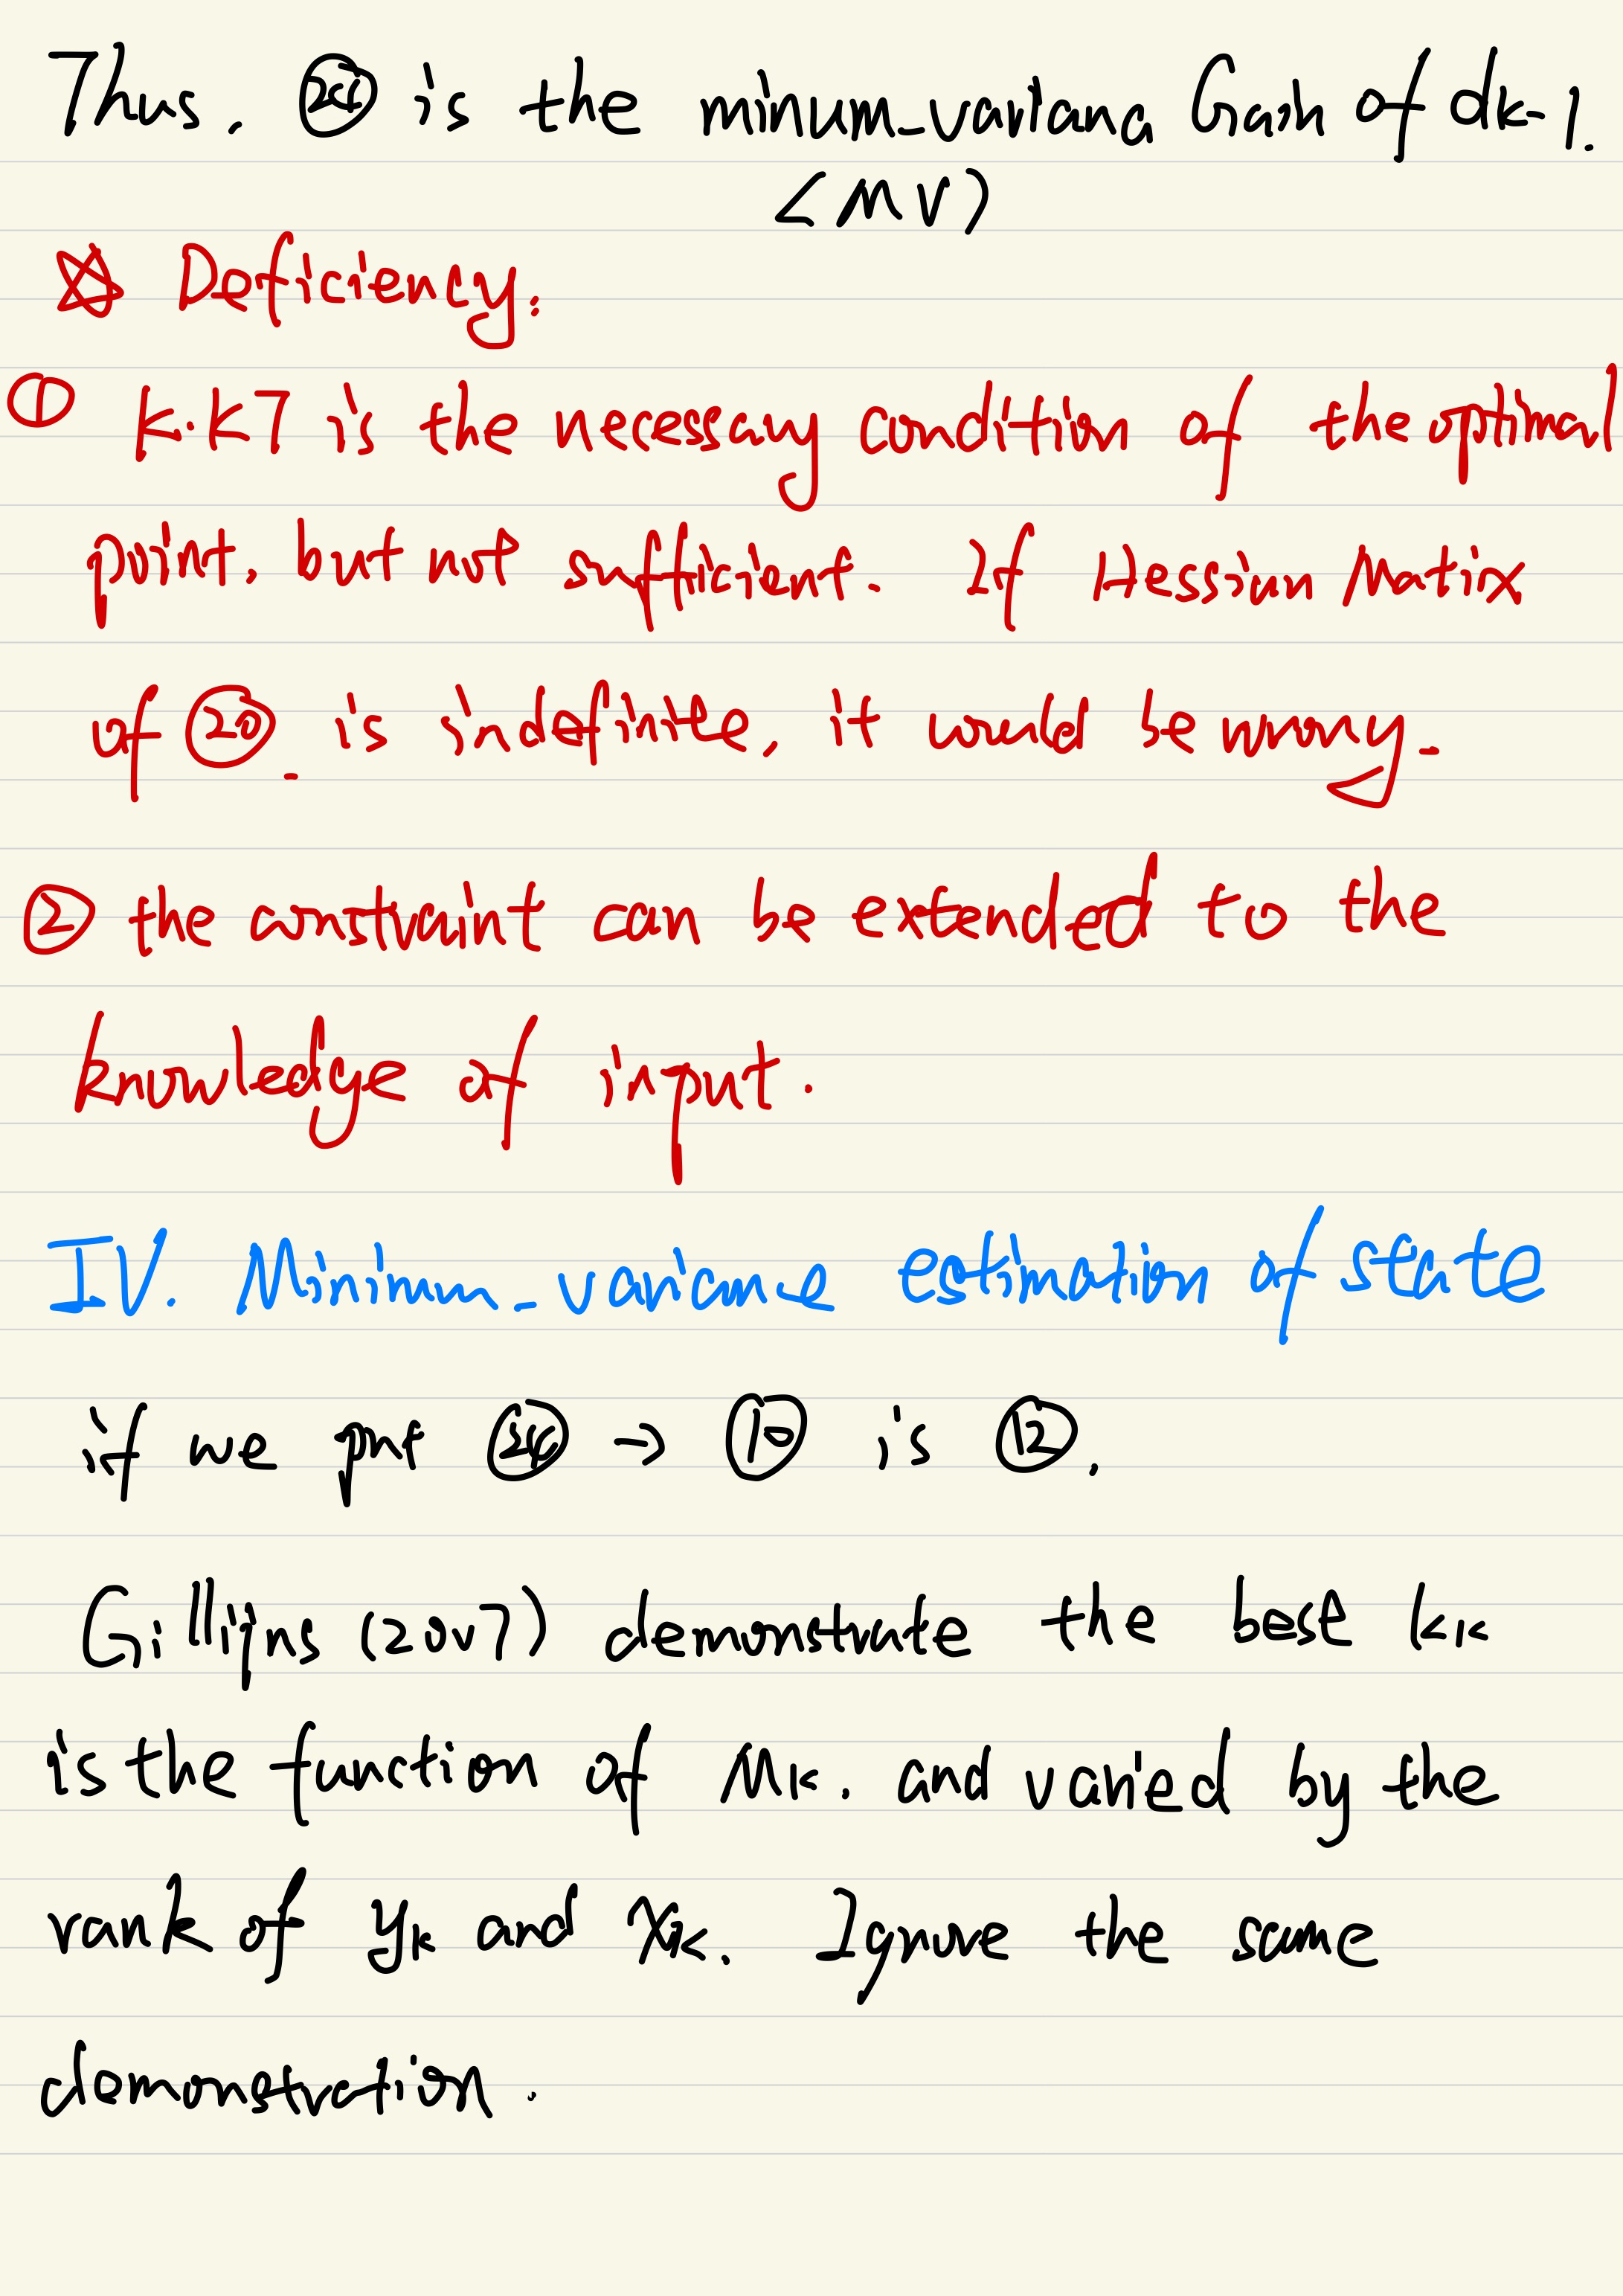 Thus. ㉖ is the minum_variana Gain of dk-1.
<MV>
☆ Deficiency:
① K.KT is the necessay condition of the optimal
point, but not sufficient. If Hessian Matix
of ⑳. is indefinite, it would be wrong.
② the constraint can be extended to the
knowledge of input.
IV. Minimum_variance estimation of state
if we put ㉖ → ⑩ is ⑫.
Gillijns (2007) demonstrate the best Kk
is the function of Mk. and varied by the
rank of yk and Xk. Ignore the same
demonstration.